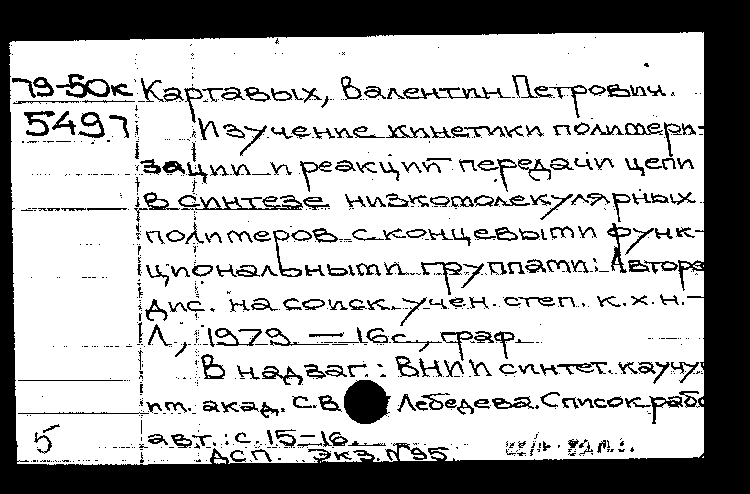 79-50к Картавых, Валентин Петрович.
5497 Изучение кинетики полимери-
зации и реакций передачи цепи
в синтезе низкомолекулярных
полимеров с концевыми функ-
циональными группами: Авторе
дис. на соиск. учен. степ. к.х.н.-
Л, 1979. — 16с., граф.
В надзаг.: ВНИИ синтет. каучу
им. акад. С.В. Лебедева. Список рабо
5 авт.: с. 15-16.
ДСП. Экз. №95